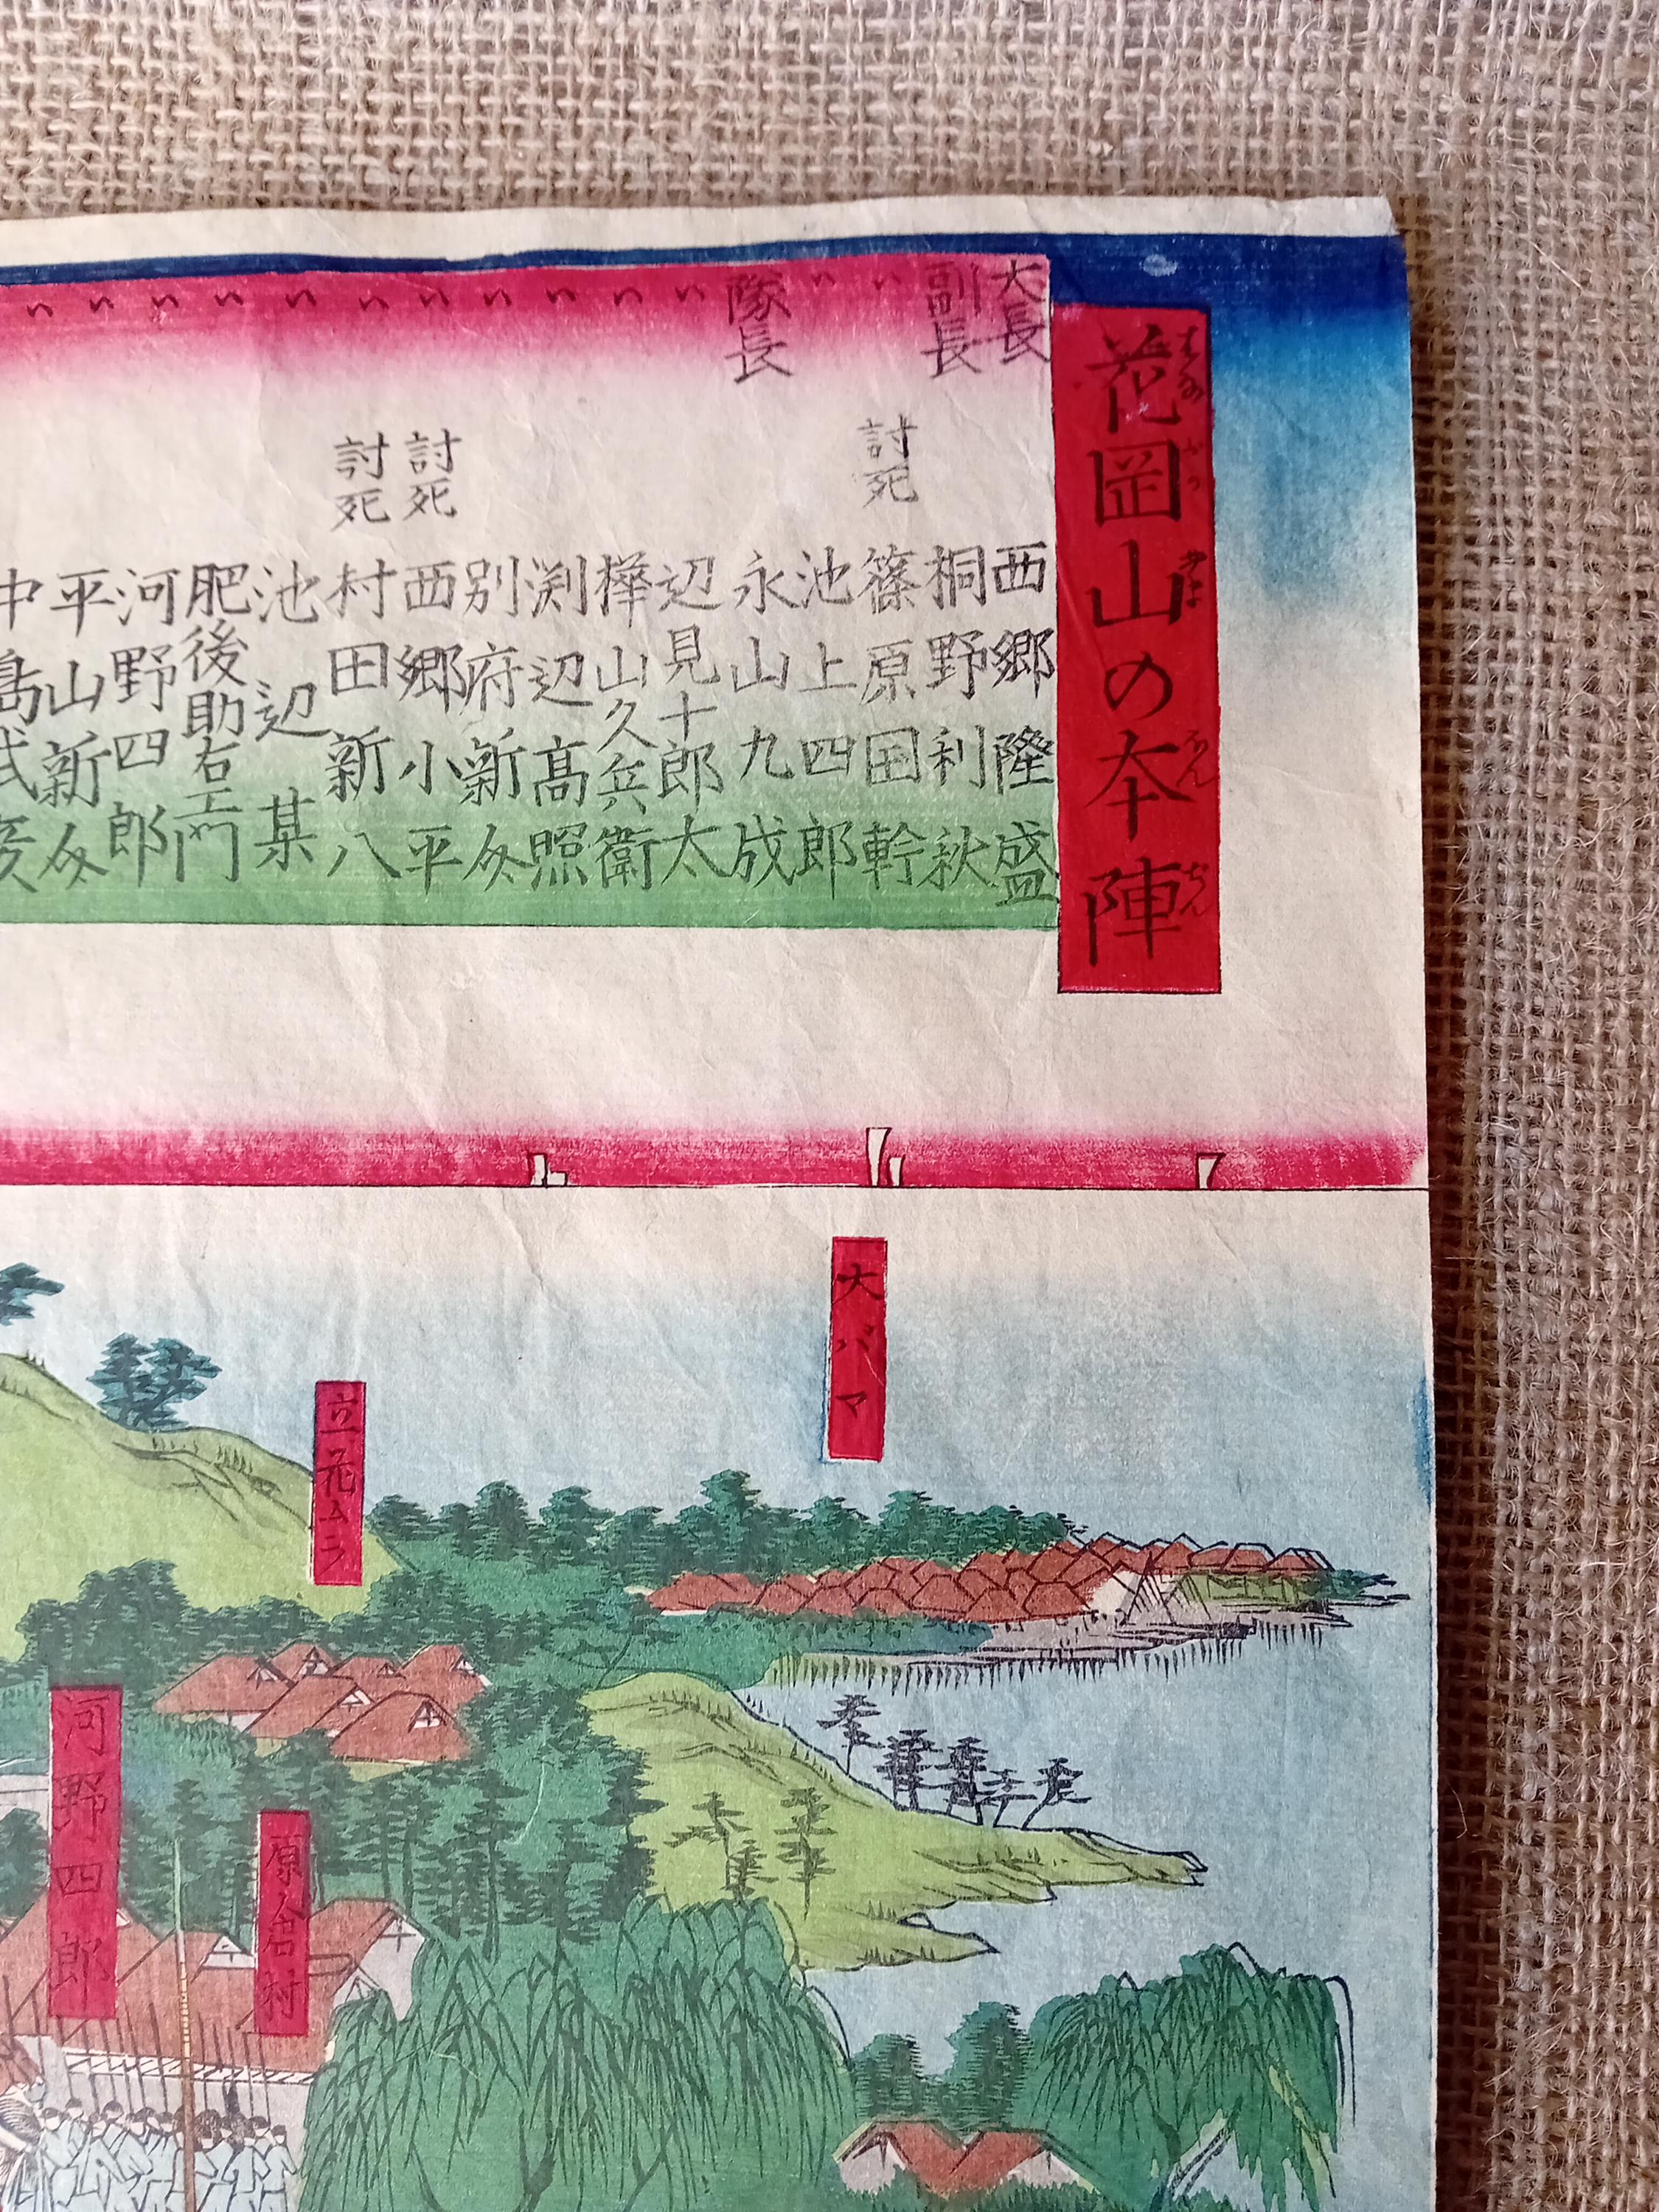 花岡山の本陣
はなおかやまほんぢん
大長 西郷隆盛
副長 桐野利秋
〃 討死 篠原国幹
〃 池上四郎
隊長 永山九成
〃 辺見十郎太
〃 樺山久兵衛
〃 渕辺高照
〃 別府新介
〃 討死 西郷小平
〃 討死 村田新八
〃 池辺某
〃 肥後助右エ門
〃 河野四郎
〃 平山新介
大バマ
立花ムラ
原倉村
河野四郎